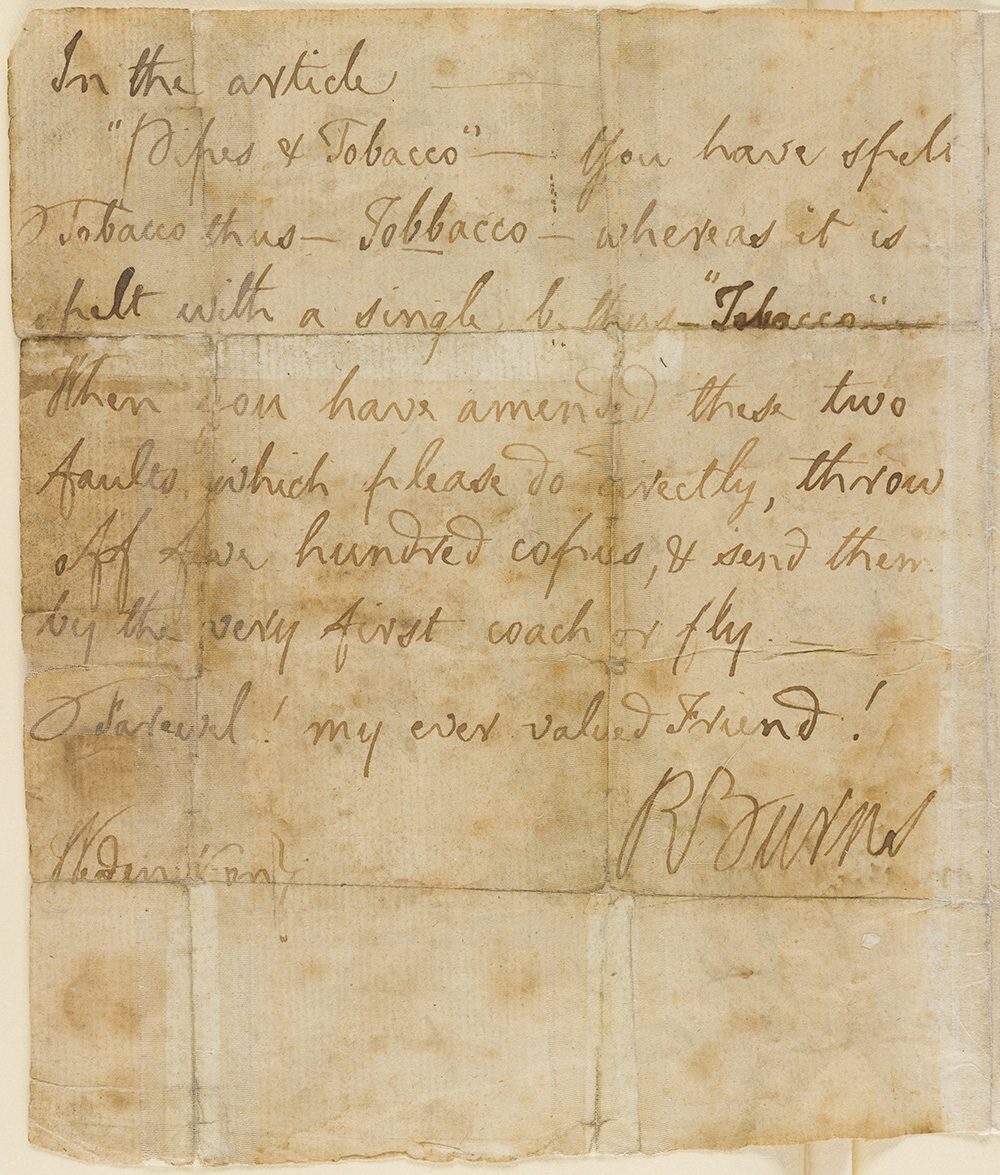 In the article —
"Pipes & Tobacco" — You have spelt
Tobacco thus — Tobbacco — whereas it is
spelt with a single b. thus — "Tobacco"
When you have amended these two
faults, which please do directly, throw
off five hundred copies, & send them
by the very first coach or fly. —
Farewel! my ever valued Friend!
RBurns